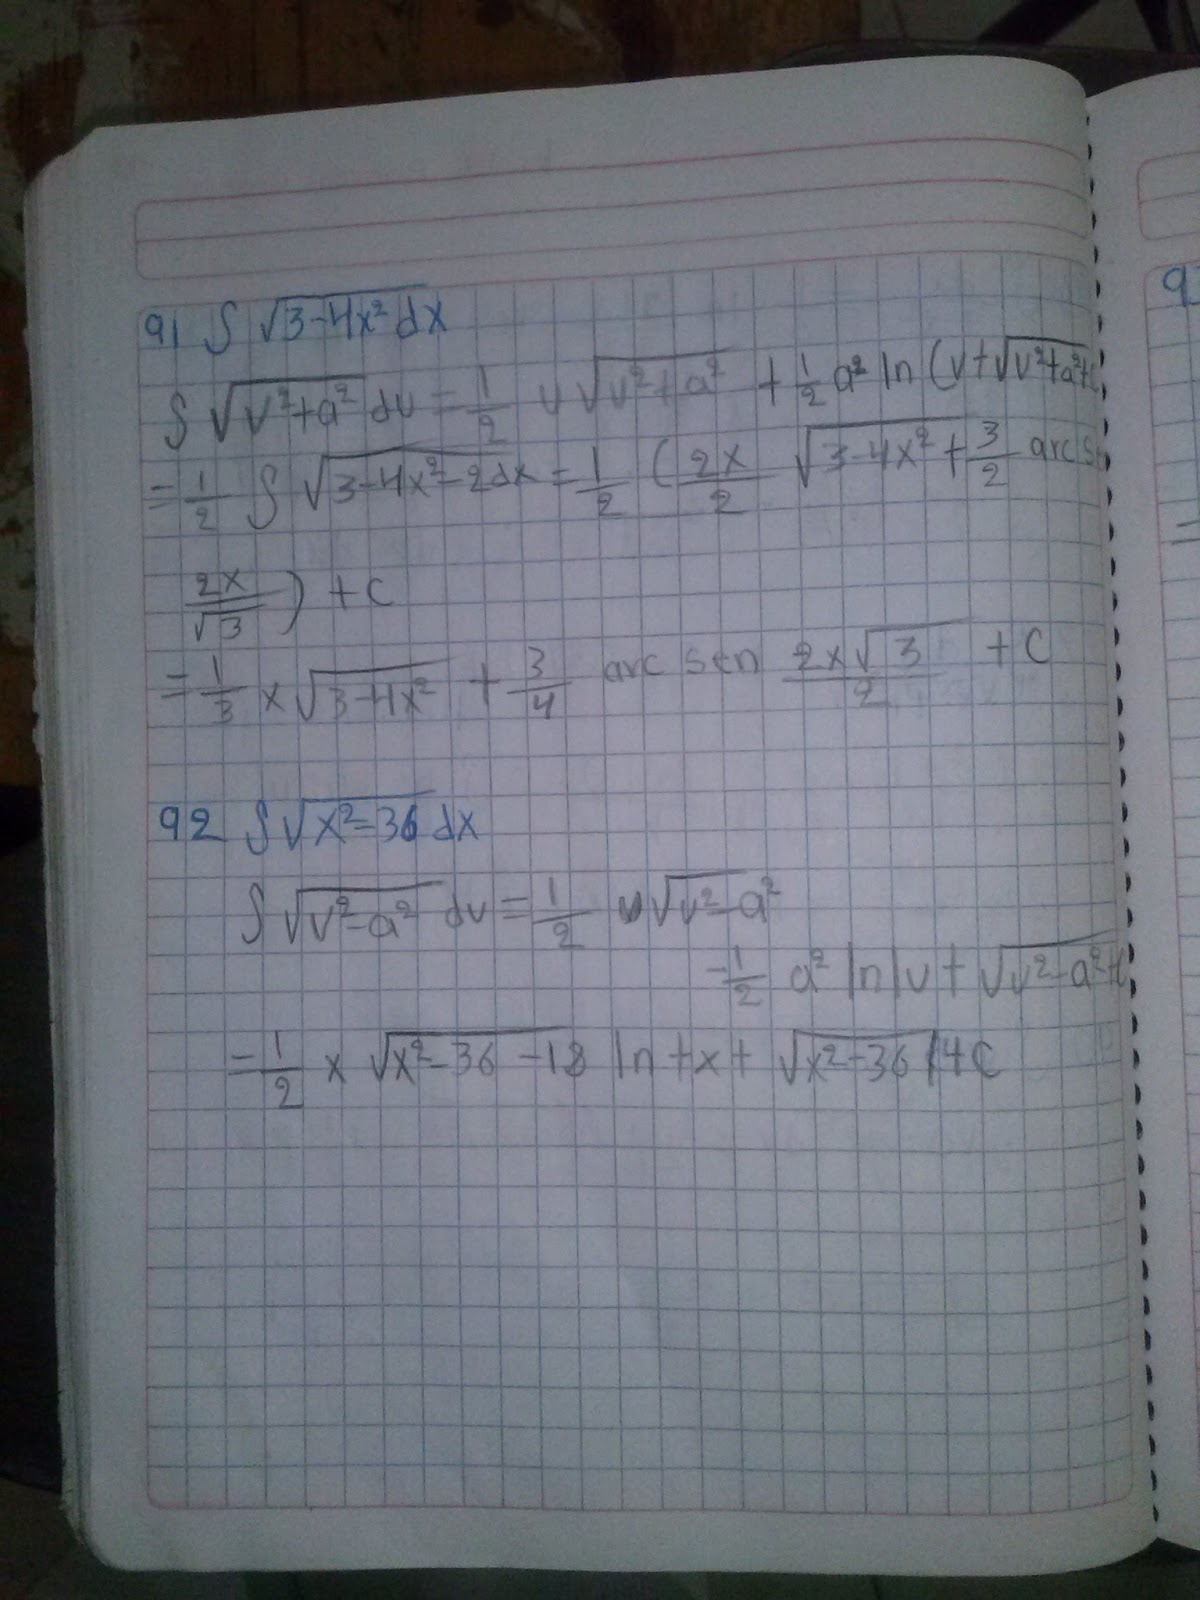 91 ∫ √3-4x² dx
∫ √v²+a² dv = 1/2 v √v²+a² + 1/2 a² ln (v+√v²+a²+c
= 1/2 ∫ √3-4x²-2dx = 1/2 ( 2x/2 √3-4x² + 3/2 arc se
2x/√3 ) + C
= 1/3 x √3-4x² + 3/4 arc sen 2x√3/2 + C
92 ∫ √x²-36 dx
∫ √v²-a² dv = 1/2 v √v²-a²
-1/2 a² ln|v + √v²-a²+c
= 1/2 x √x²-36 -18 ln +x+ √x²-36 /4C
9
=